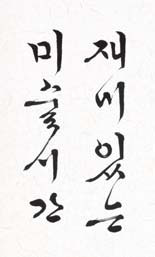 재미있는
미술시간